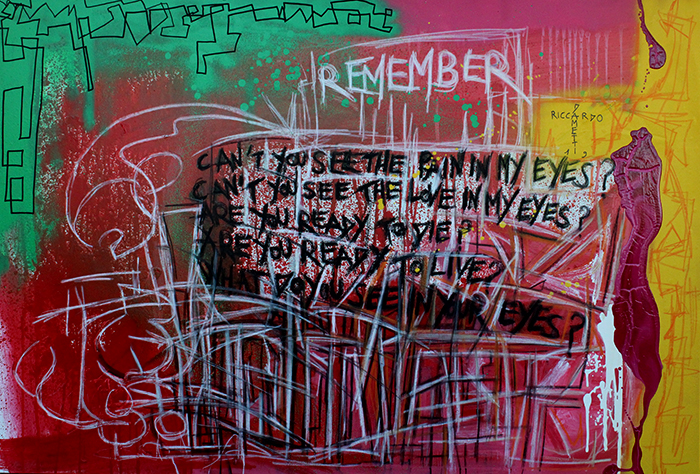 REMEMBER
RICCARDO
CAN'T YOU SEE THE PAIN IN MY EYES?
CAN'T YOU SEE THE LOVE IN MY EYES?
ARE YOU READY TO DIE?
ARE YOU READY TO LIVE?
WHAT DO YOU SEE IN YOUR EYES?